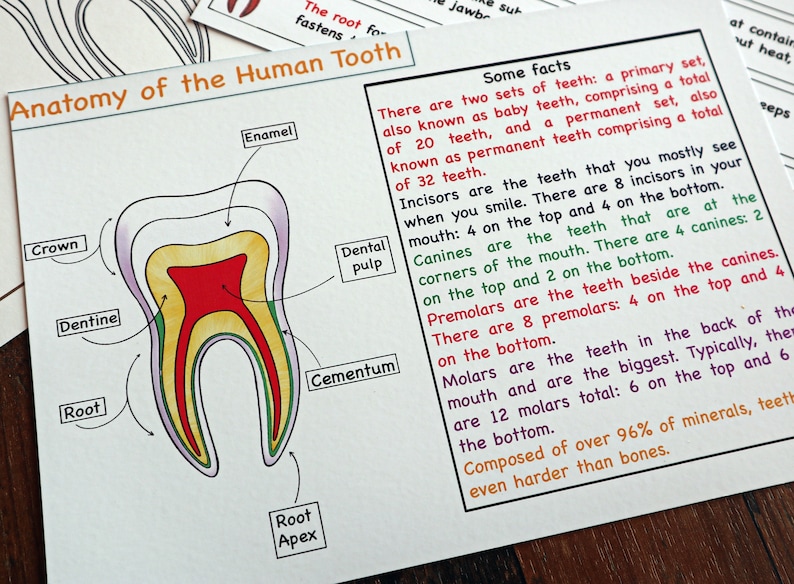 The root fo
fastens
ke sul
the jawbo
at contain
out heat,
eeps
Anatomy of the Human Tooth
Enamel
Crown
Dental
pulp
Dentine
Cementum
Root
Root
Apex
Some facts
There are two sets of teeth: a primary set,
also known as baby teeth, comprising a total
of 20 teeth, and a permanent set, also
known as permanent teeth comprising a total
of 32 teeth.
Incisors are the teeth that you mostly see
when you smile. There are 8 incisors in your
mouth: 4 on the top and 4 on the bottom.
Canines are the teeth that are at the
corners of the mouth. There are 4 canines: 2
on the top and 2 on the bottom.
Premolars are the teeth beside the canines.
There are 8 premolars: 4 on the top and 4
on the bottom.
Molars are the teeth in the back of the
mouth and are the biggest. Typically, ther
are 12 molars total: 6 on the top and 6
the bottom.
Composed of over 96% of minerals, teeth
even harder than bones.